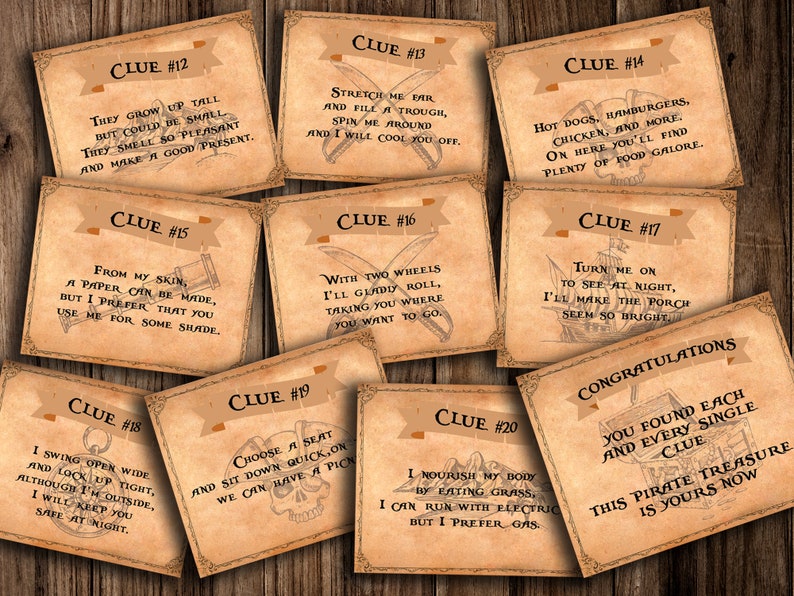 Clue #12
They grow up tall
but could be small.
They smell so pleasant
and make a good present.
Clue #13
Stretch me far
and fill a trough,
spin me around
and I will cool you off.
Clue #14
Hot dogs, hamburgers,
chicken, and more.
On here you'll find
plenty of food galore.
Clue #15
From my skin,
a paper can be made,
but I prefer that you
use me for some shade.
Clue #16
With two wheels
I'll gladly roll,
taking you where
you want to go.
Clue #17
Turn me on
to see at night,
I'll make the porch
seem so bright.
Clue #18
I swing open wide
and lock up tight,
although I'm outside,
I will keep you
safe at night.
Clue #19
Choose a seat
and sit down quick, on
we can have a
Clue #20
I nourish my body
by eating grass,
I can run with
but I prefer gas.
Congratulations
you found each
and every single
clue
this pirate treasure
is yours now